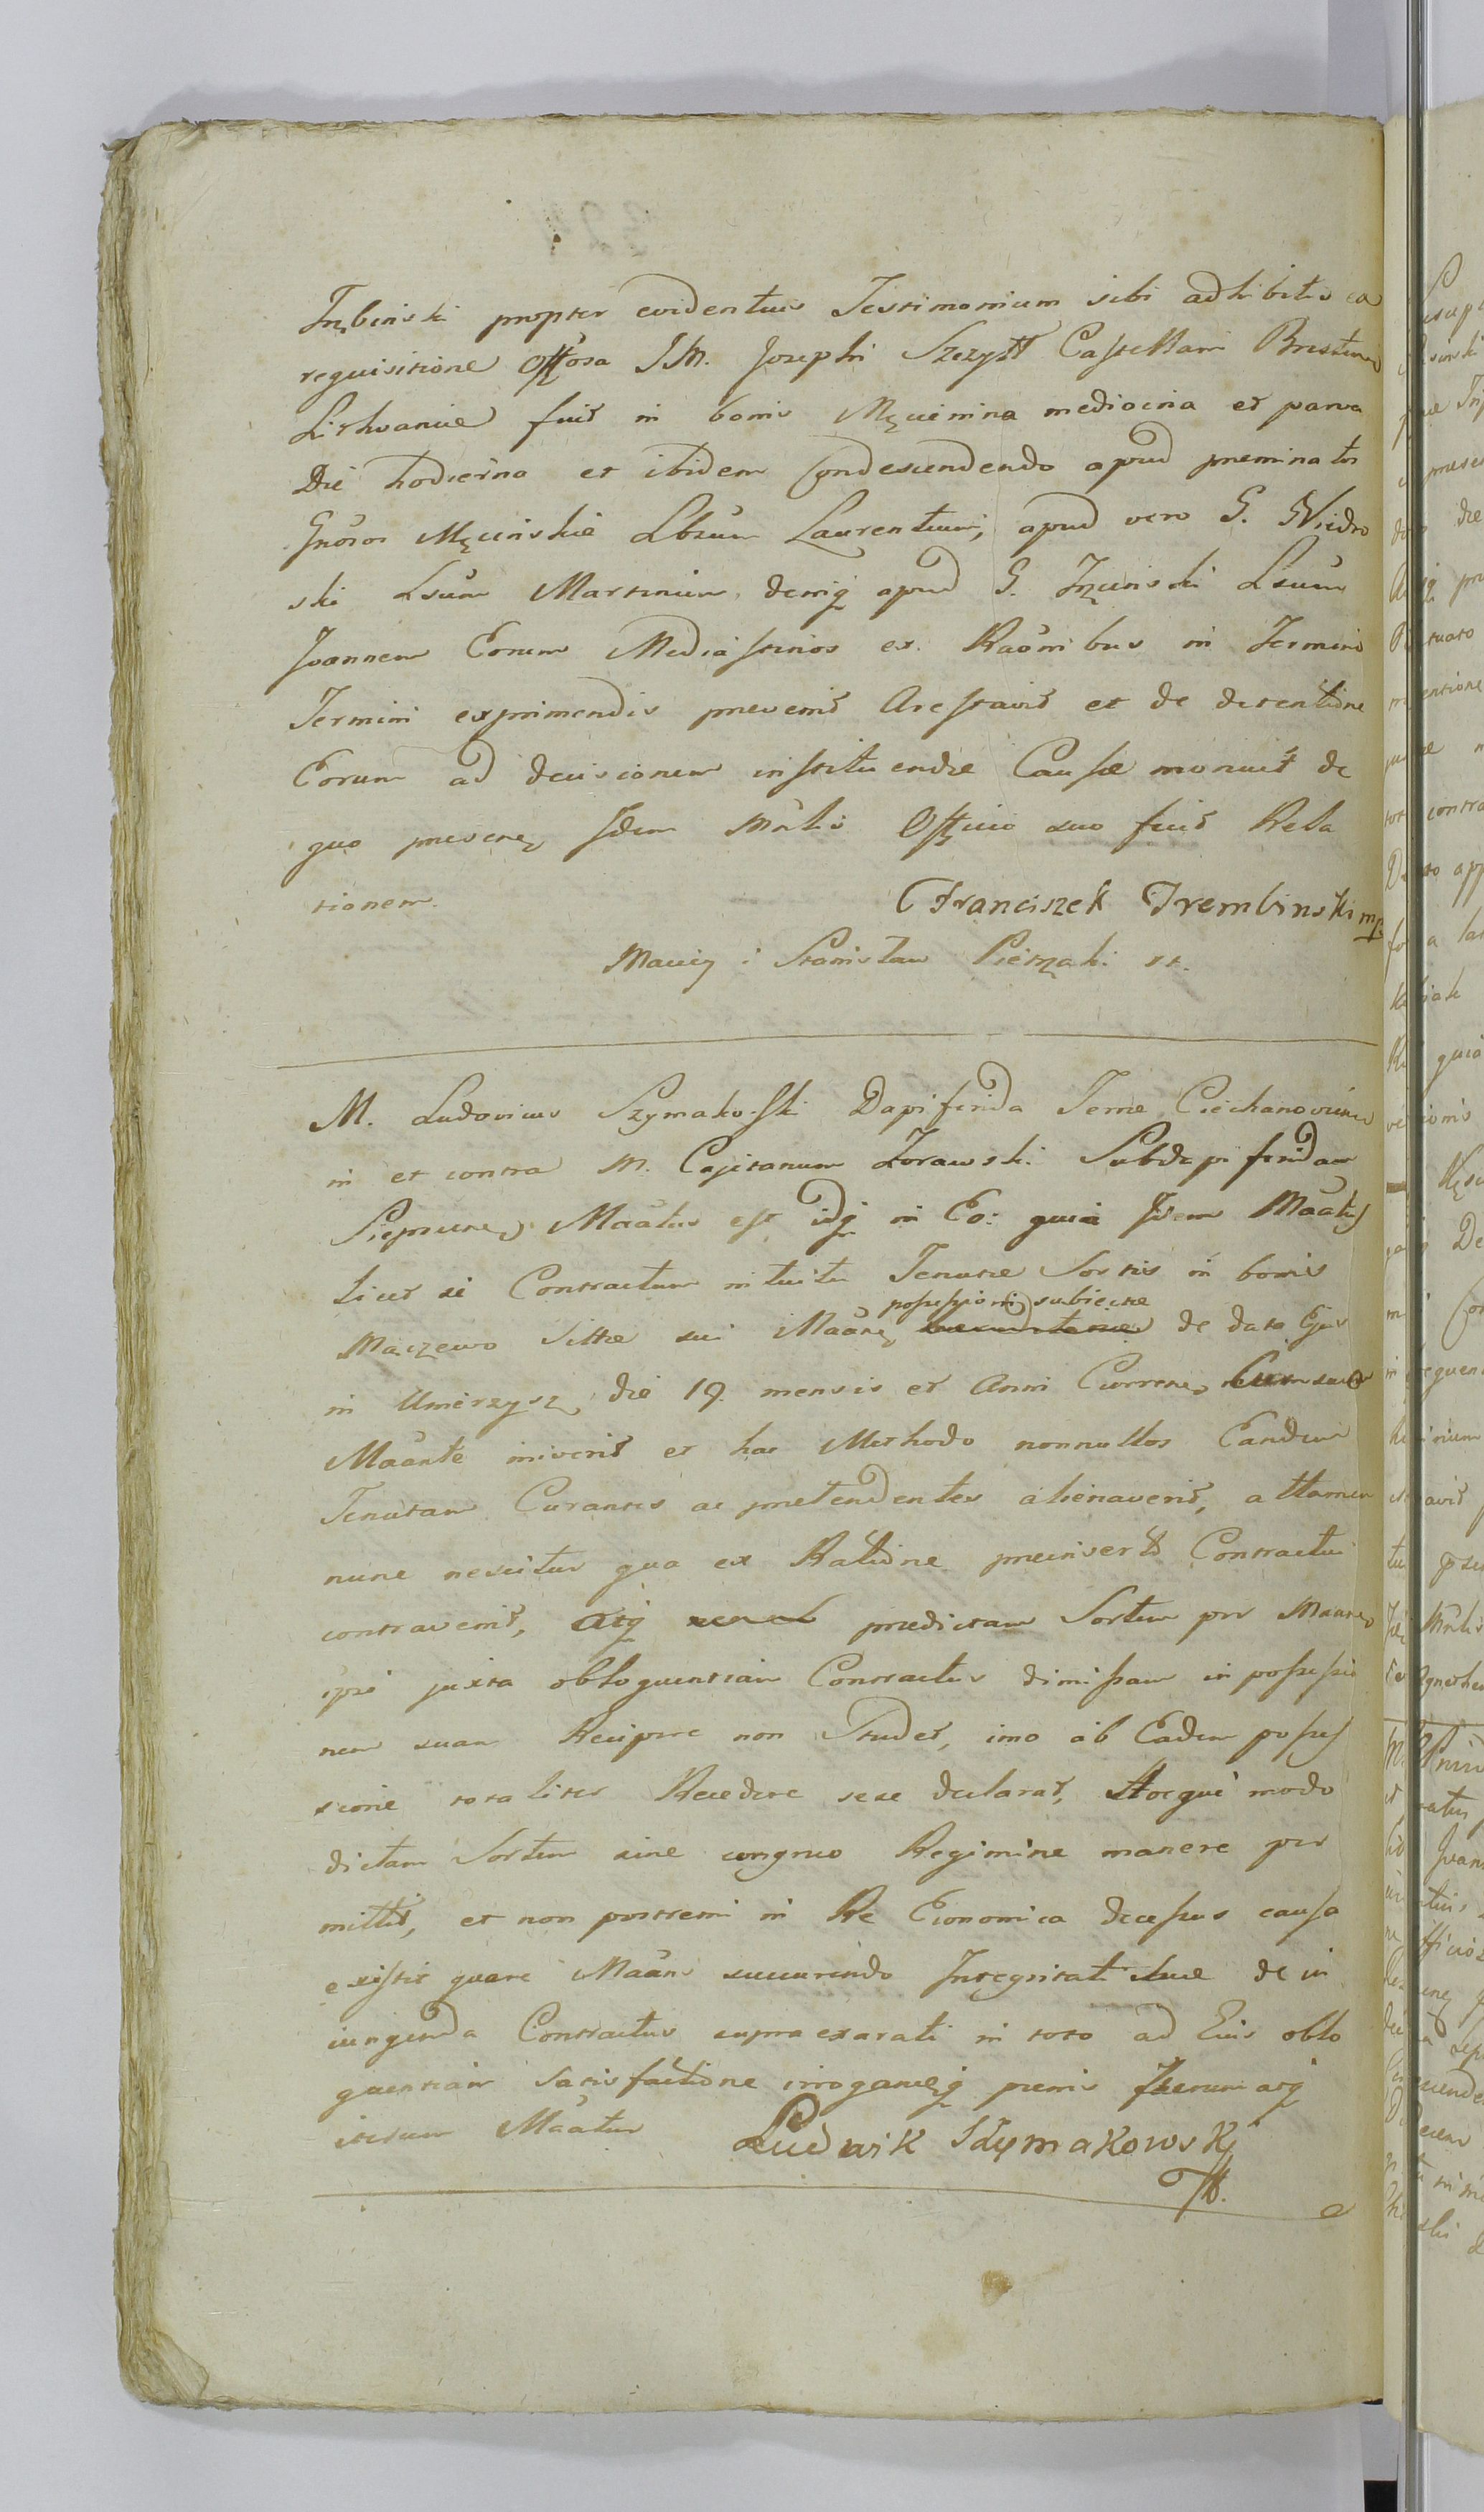 Trębinski propter evidentius Testimonium sibi adhibitis ea
requisitione Offősa IM. Josephi Szczytt Castellani Brestens
Lithvaniæ fuit in bonis Męcimina mediocria et parva
Die hodierna et ibidem condescendendo apud preminatos
Gnősos Męcinskie Lbsum Laurentium, apud vero G. Widro
ski Lsum Martinum, deniq apud G. Lsum
Joannem Eorum Mediastinos ex Raőnibus in Termino
Termini exprimendis prevenit Arestavit et de detentione
Eorum ad decisionem instituendæ Causæ monuit de
quo prevene Idem Mrlis Officio suo fecit Rela
tionem.
Franciszek Trembinski mp.
Maciey i Stanisław Piętzaki xx.
M. Ludovicus Szymakoski Dapiferida Terræ Ciechanoviens
in et contra M. Cajetanum Zorawski Subdapiferidam
Maãtus est idq in Eo: quia Idem Maãtus
licet is Contractum intuitu Tenutæ Sortis in bonis
possessioni subiectæ
Maczewo Sittæ sui Maãne de data Ejus
in Umerzysz die 19 mensis et Anni Curren cum suo
Maãnte iniverit et hac Methodo nonnullos Eandem
Tenutam Curantes ac pretendentes alienaverit, attamen
nunc nescitur qua ex Ratione preinserto Contractui
contravenit, atq predictam Sortem per Maãnte
ipsi juxta obloquentiam Contractus dimissam in possessio
nem suam Recipere non Studet, imo ab Eadem posses
sione totaliter Recedere sese declarat, Hocque modo
dictam Sortem sine congruo Regimine manere per
mittit, et non postremi in Re Economica decessus causa
existit quare Maãns succurrendo Integritati suæ de in
iungenda Contractus supraexarati in toto ad Eius oblo
quentiam satisfactione irrogandisq penis Iterum atq
iterum Maãtur
Ludwik Szymakowski